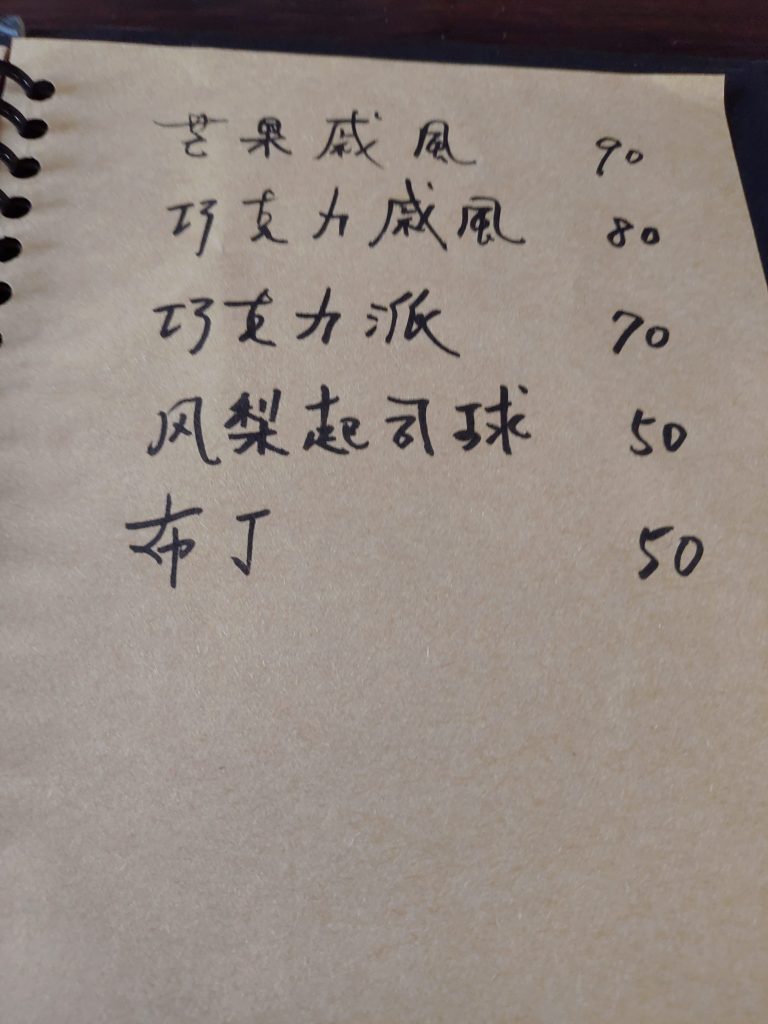 芒果戚風 90
巧克力戚風 80
巧克力派 70
风梨起司球 50
布丁 50